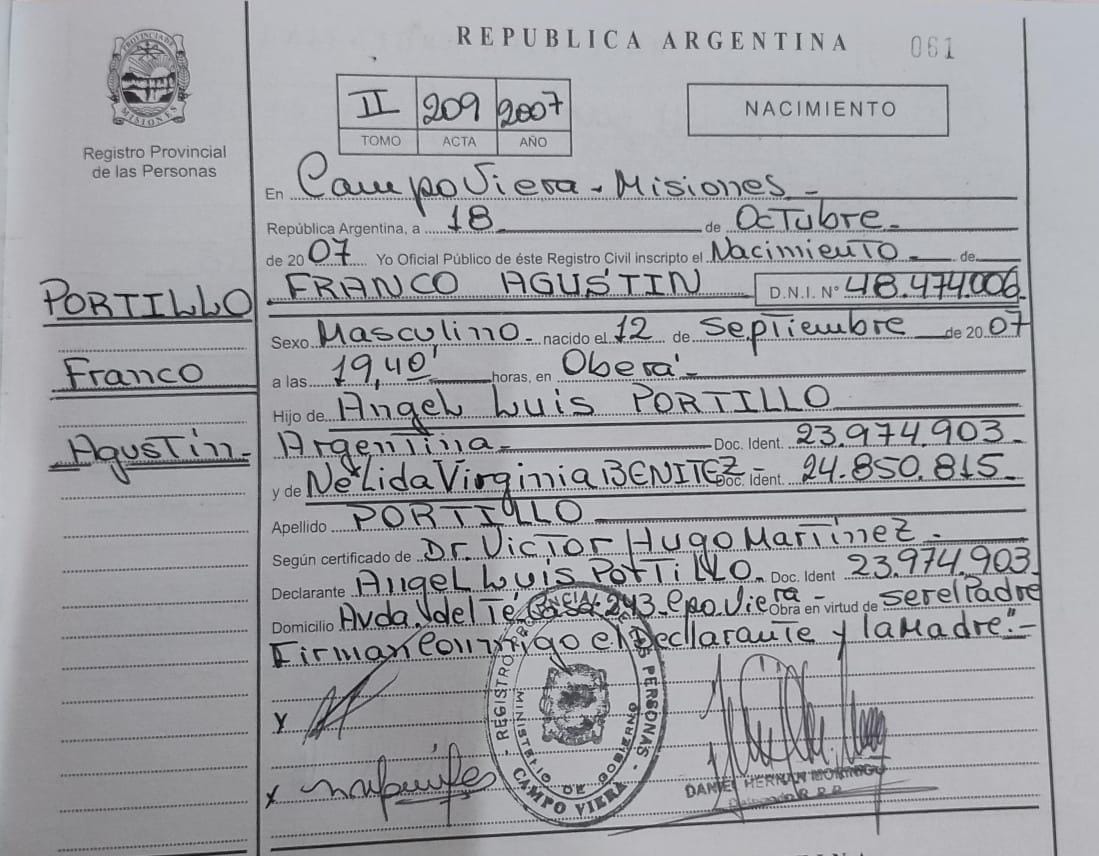 REPUBLICA ARGENTINA
061
PROVINCIA DE
MISIONES
Registro Provincial
de las Personas
II 209 2007
TOMO ACTA AÑO
NACIMIENTO
En Campo Viera - Misiones -
República Argentina, a 18 de Octubre -
de 2007 Yo Oficial Público de éste Registro Civil inscripto el Nacimiento - de
FRANCO AGUSTIN D.N.I. N° 48.474.006.
PORTILLO
Franco
Agustín -
Sexo Masculino - nacido el 12 de Septiembre de 2007
a las 19,40' horas, en Oberá -
Hijo de Angel Luis PORTILLO
Argentina - Doc. Ident. 23.974.903 -
y de Nélida Virginia BENITEZ - Doc. Ident. 24.850.815 -
Apellido PORTILLO
Según certificado de Dr. Victor Hugo Martínez -
Declarante Angel Luis PorTILLO - Doc. Ident 23.974.903
Domicilio Avda. del Té 243 - Cpo Viera - Obra en virtud de ser el Padre
Firman Conmigo el Declarante y la Madre:-
REGISTRO PROVINCIAL DE PERSONAS -
MINISTERIO DE GOBIERNO
CAMPO VIERA
DANIEL HERNAN MORINIGO